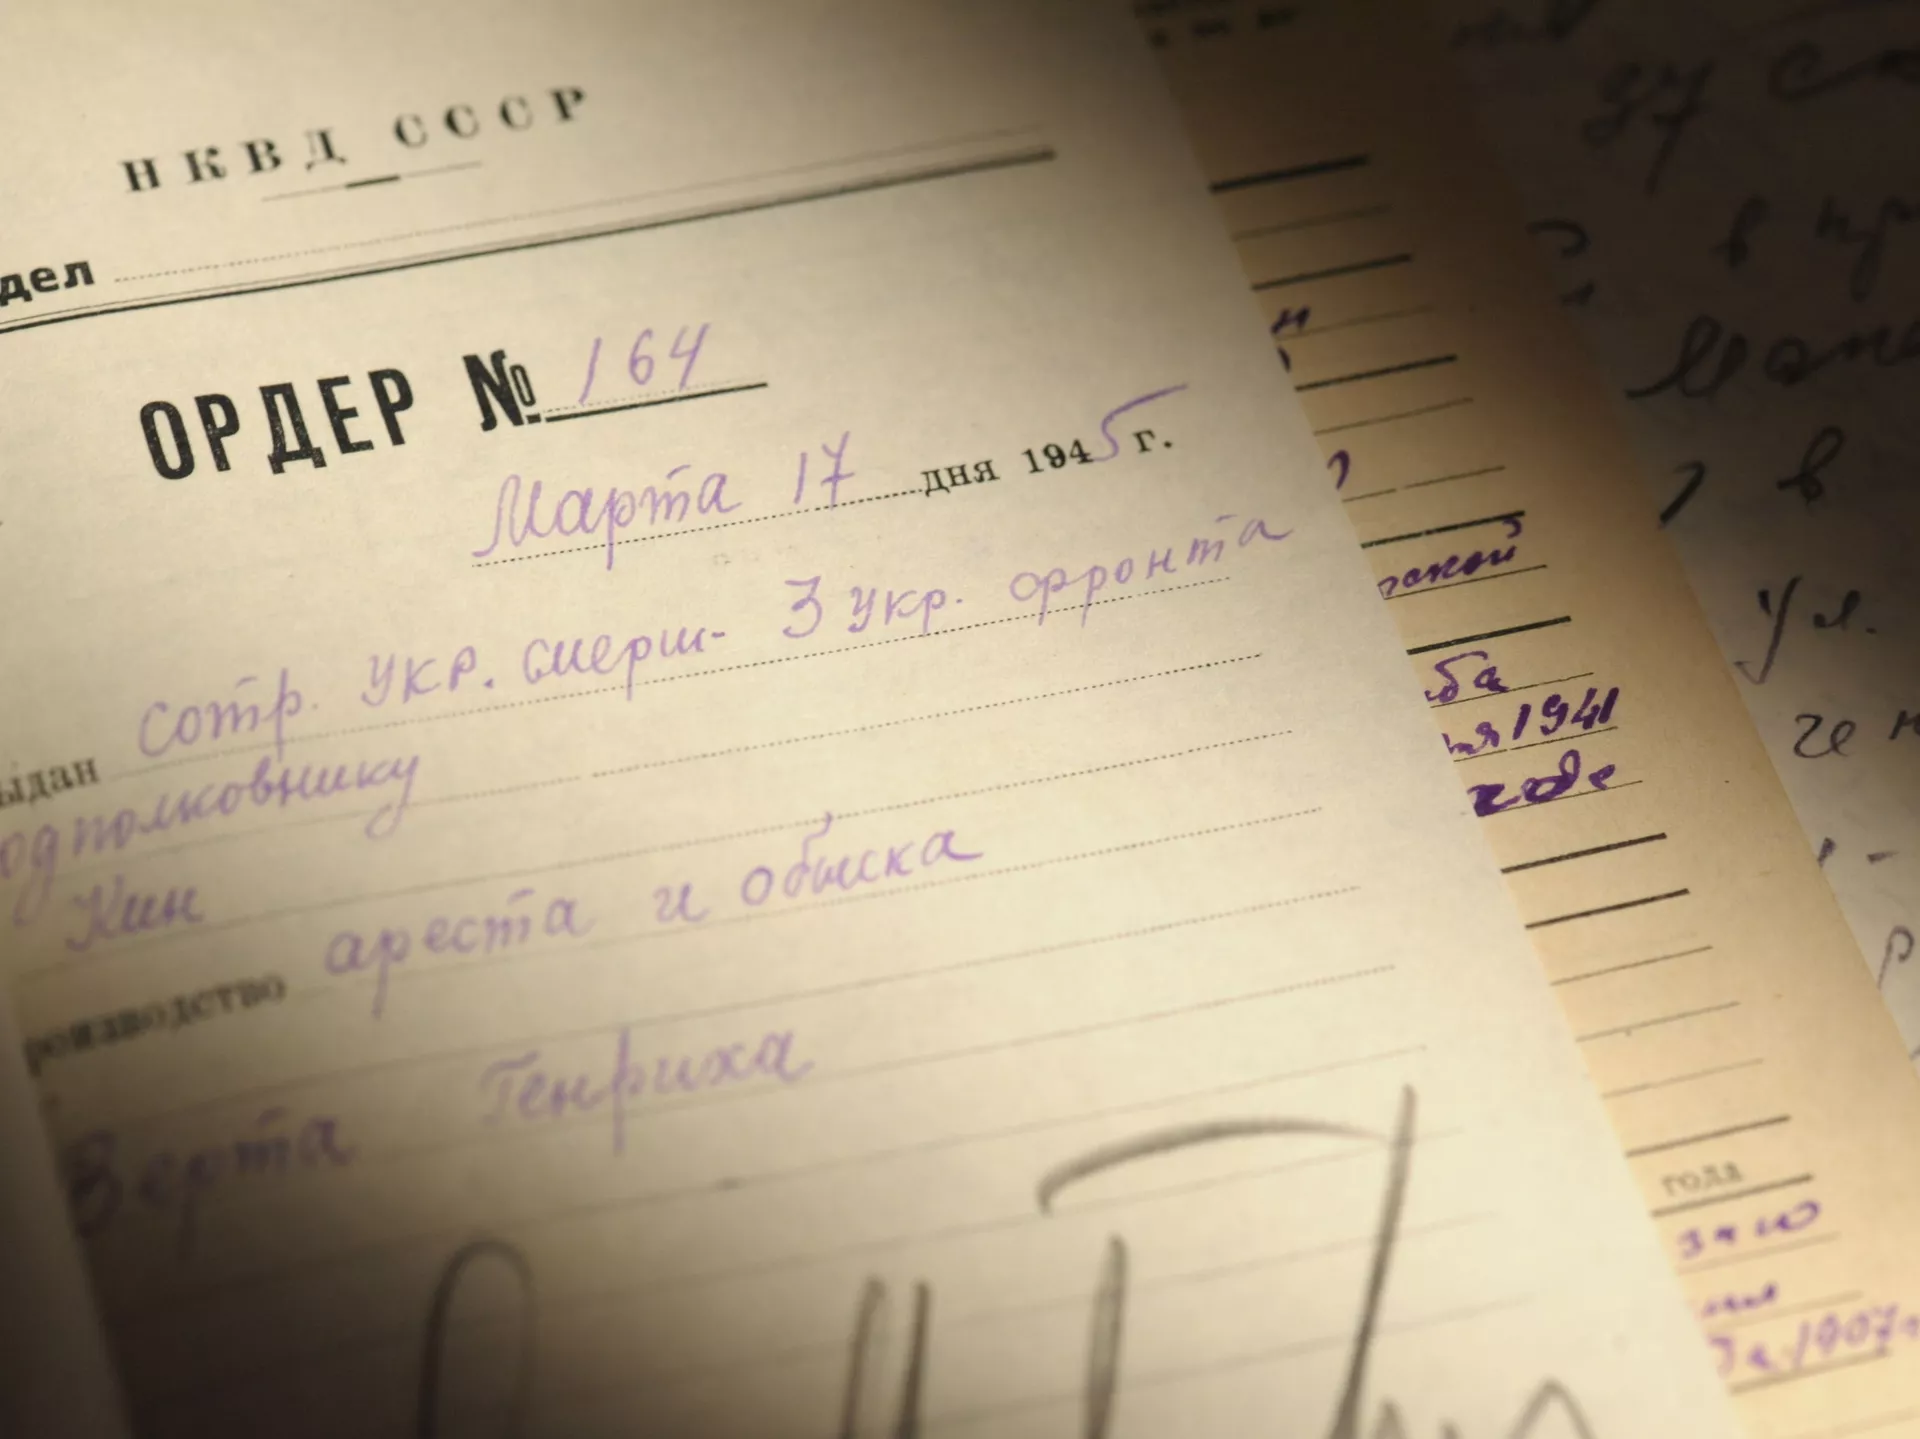 НКВД СССР
дел
ОРДЕР № 164
Марта 17 дня 1945 г.
ыдан сотр. укр. смерш- 3 укр. фронта
одполковнику
Кин
роизводство ареста и обыска
Верта Генриха
ской
ба
1941
годе
года
1907г
97
в
в
ул.